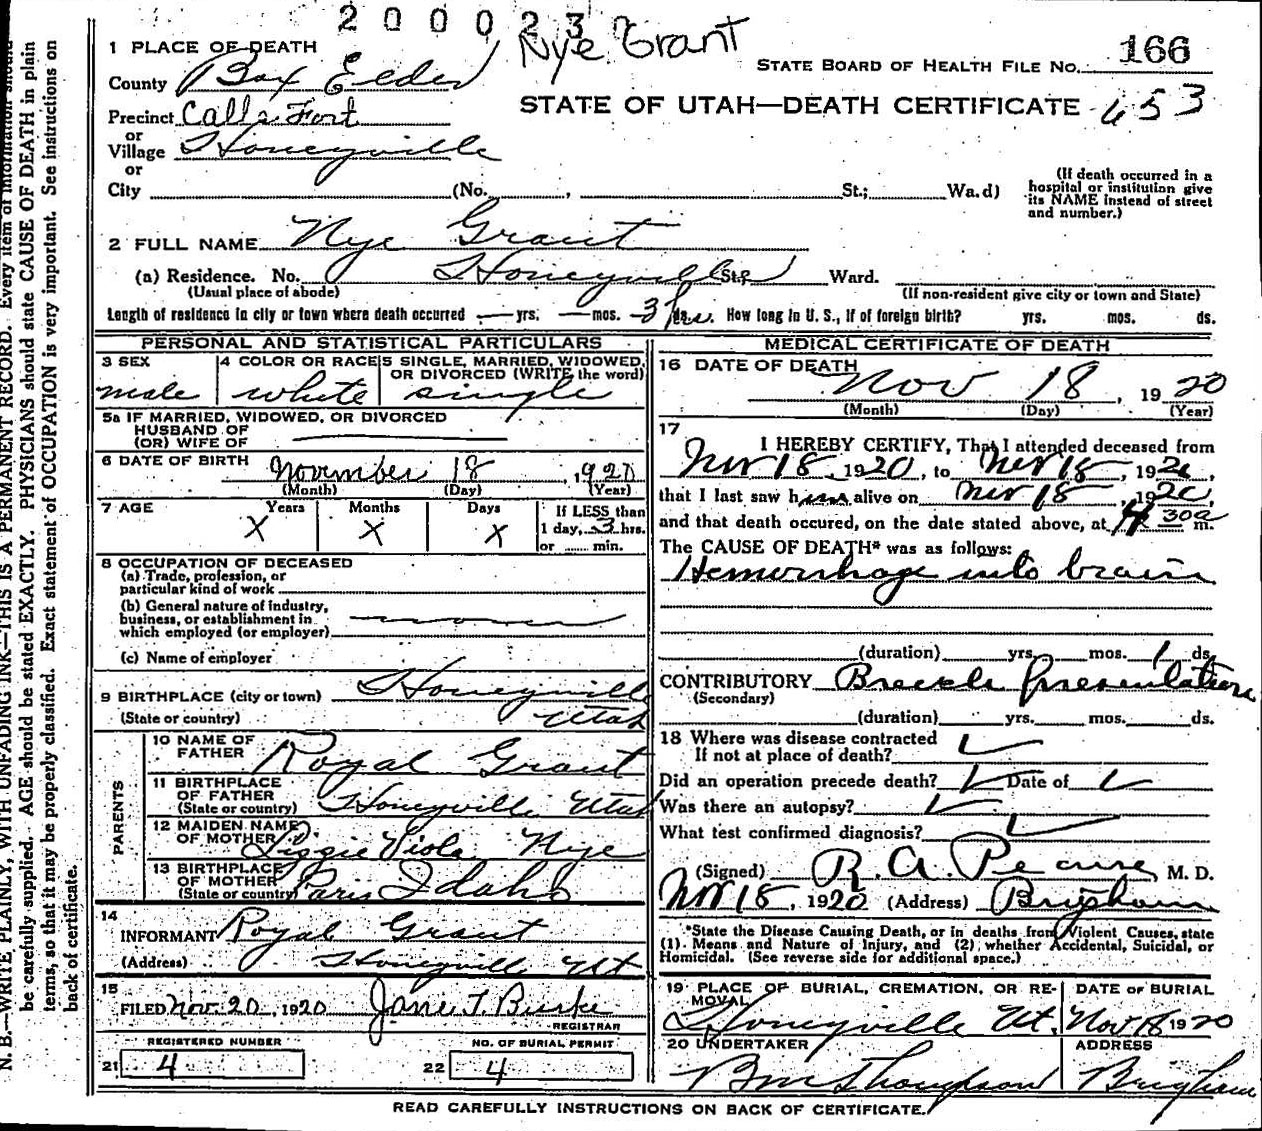 200023
Nye Grant
1 PLACE OF DEATH
County Box Elder
STATE BOARD OF HEALTH FILE No. 166
STATE OF UTAH—DEATH CERTIFICATE 653
Precinct Calls Fort
or
Village Honeyville
or
City (No. , St.; Wa.d)
(If death occurred in a hospital or institution give its NAME instead of street and number.)
2 FULL NAME Nye Grant
(a) Residence. No. Honeyville St., Ward.
(Usual place of abode) (If non-resident give city or town and State)
Length of residence in city or town where death occurred — yrs. — mos. 3 hrs. How long in U. S., if of foreign birth? yrs. mos. ds.
PERSONAL AND STATISTICAL PARTICULARS
3 SEX male
4 COLOR OR RACE white
5 SINGLE, MARRIED, WIDOWED, OR DIVORCED (WRITE the word) single
5a IF MARRIED, WIDOWED, OR DIVORCED
HUSBAND OF
(OR) WIFE OF
6 DATE OF BIRTH November 18, 1920
(Month) (Day) (Year)
7 AGE Years X Months X Days X If LESS than 1 day, 3 hrs. or min.
8 OCCUPATION OF DECEASED
(a) Trade, profession, or particular kind of work
(b) General nature of industry, business, or establishment in which employed (or employer)
(c) Name of employer
9 BIRTHPLACE (city or town) Honeyville
(State or country) Utah
PARENTS
10 NAME OF FATHER Royal Grant
11 BIRTHPLACE OF FATHER (State or country) Honeyville Utah
12 MAIDEN NAME OF MOTHER Lizzie Viola Nye
13 BIRTHPLACE OF MOTHER (State or country) Paris Idaho
14
INFORMANT Royal Grant
(Address) Honeyville Ut
15
FILED Nov. 20, 1920 Jane T. Burke
REGISTRAR
REGISTERED NUMBER
21 4
NO. OF BURIAL PERMIT
22 4
MEDICAL CERTIFICATE OF DEATH
16 DATE OF DEATH Nov 18, 1920
(Month) (Day) (Year)
17
I HEREBY CERTIFY, That I attended deceased from
Nov 18 1920, to Nov 18, 1920,
that I last saw him alive on Nov 18, 1920,
and that death occured, on the date stated above, at 4 30a m.
The CAUSE OF DEATH* was as follows:
Hemorrhage into brain
(duration) yrs. mos. 1 ds.
CONTRIBUTORY Breech presentation
(Secondary)
(duration) yrs. mos. ds.
18 Where was disease contracted
If not at place of death?
Did an operation precede death? Date of
Was there an autopsy?
What test confirmed diagnosis?
(Signed) R. A. Pearse M. D.
Nov 18, 1920 (Address) Brigham
*State the Disease Causing Death, or in deaths from Violent Causes, state
(1) Means and Nature of Injury, and (2) whether Accidental, Suicidal, or
Homicidal. (See reverse side for additional space.)
19 PLACE OF BURIAL, CREMATION, OR REMOVAL Honeyville Ut.
DATE OF BURIAL Nov 18 1920
20 UNDERTAKER
ADDRESS Brigham
READ CAREFULLY INSTRUCTIONS ON BACK OF CERTIFICATE.
N. B.—WRITE PLAINLY, WITH UNFADING INK—THIS IS A PERMANENT RECORD. Every item of information should
be carefully supplied. AGE should be stated EXACTLY. PHYSICIANS should state CAUSE OF DEATH in plain
terms, so that it may be properly classified. Exact statement of OCCUPATION is very important. See instructions on
back of certificate.